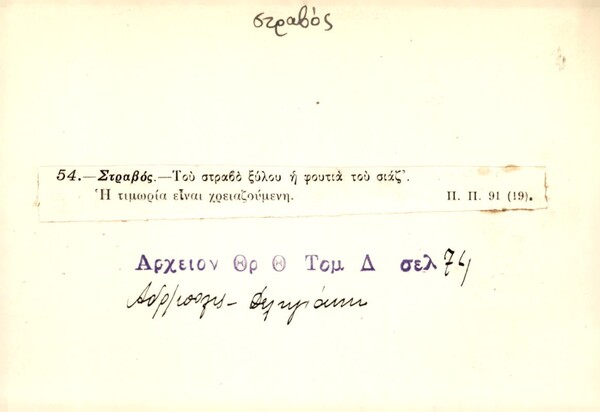 στραβός
54.—Στραβός.—Τοῦ στραβὸ ξύλου ἡ φουτιὰ τοῦ σιάζ'.
Ἡ τιμωρία εἶναι χρειαζούμενη. Π. Π. 91 (19).
Αρχειον Θρ Θ Τομ Δ σελ 74